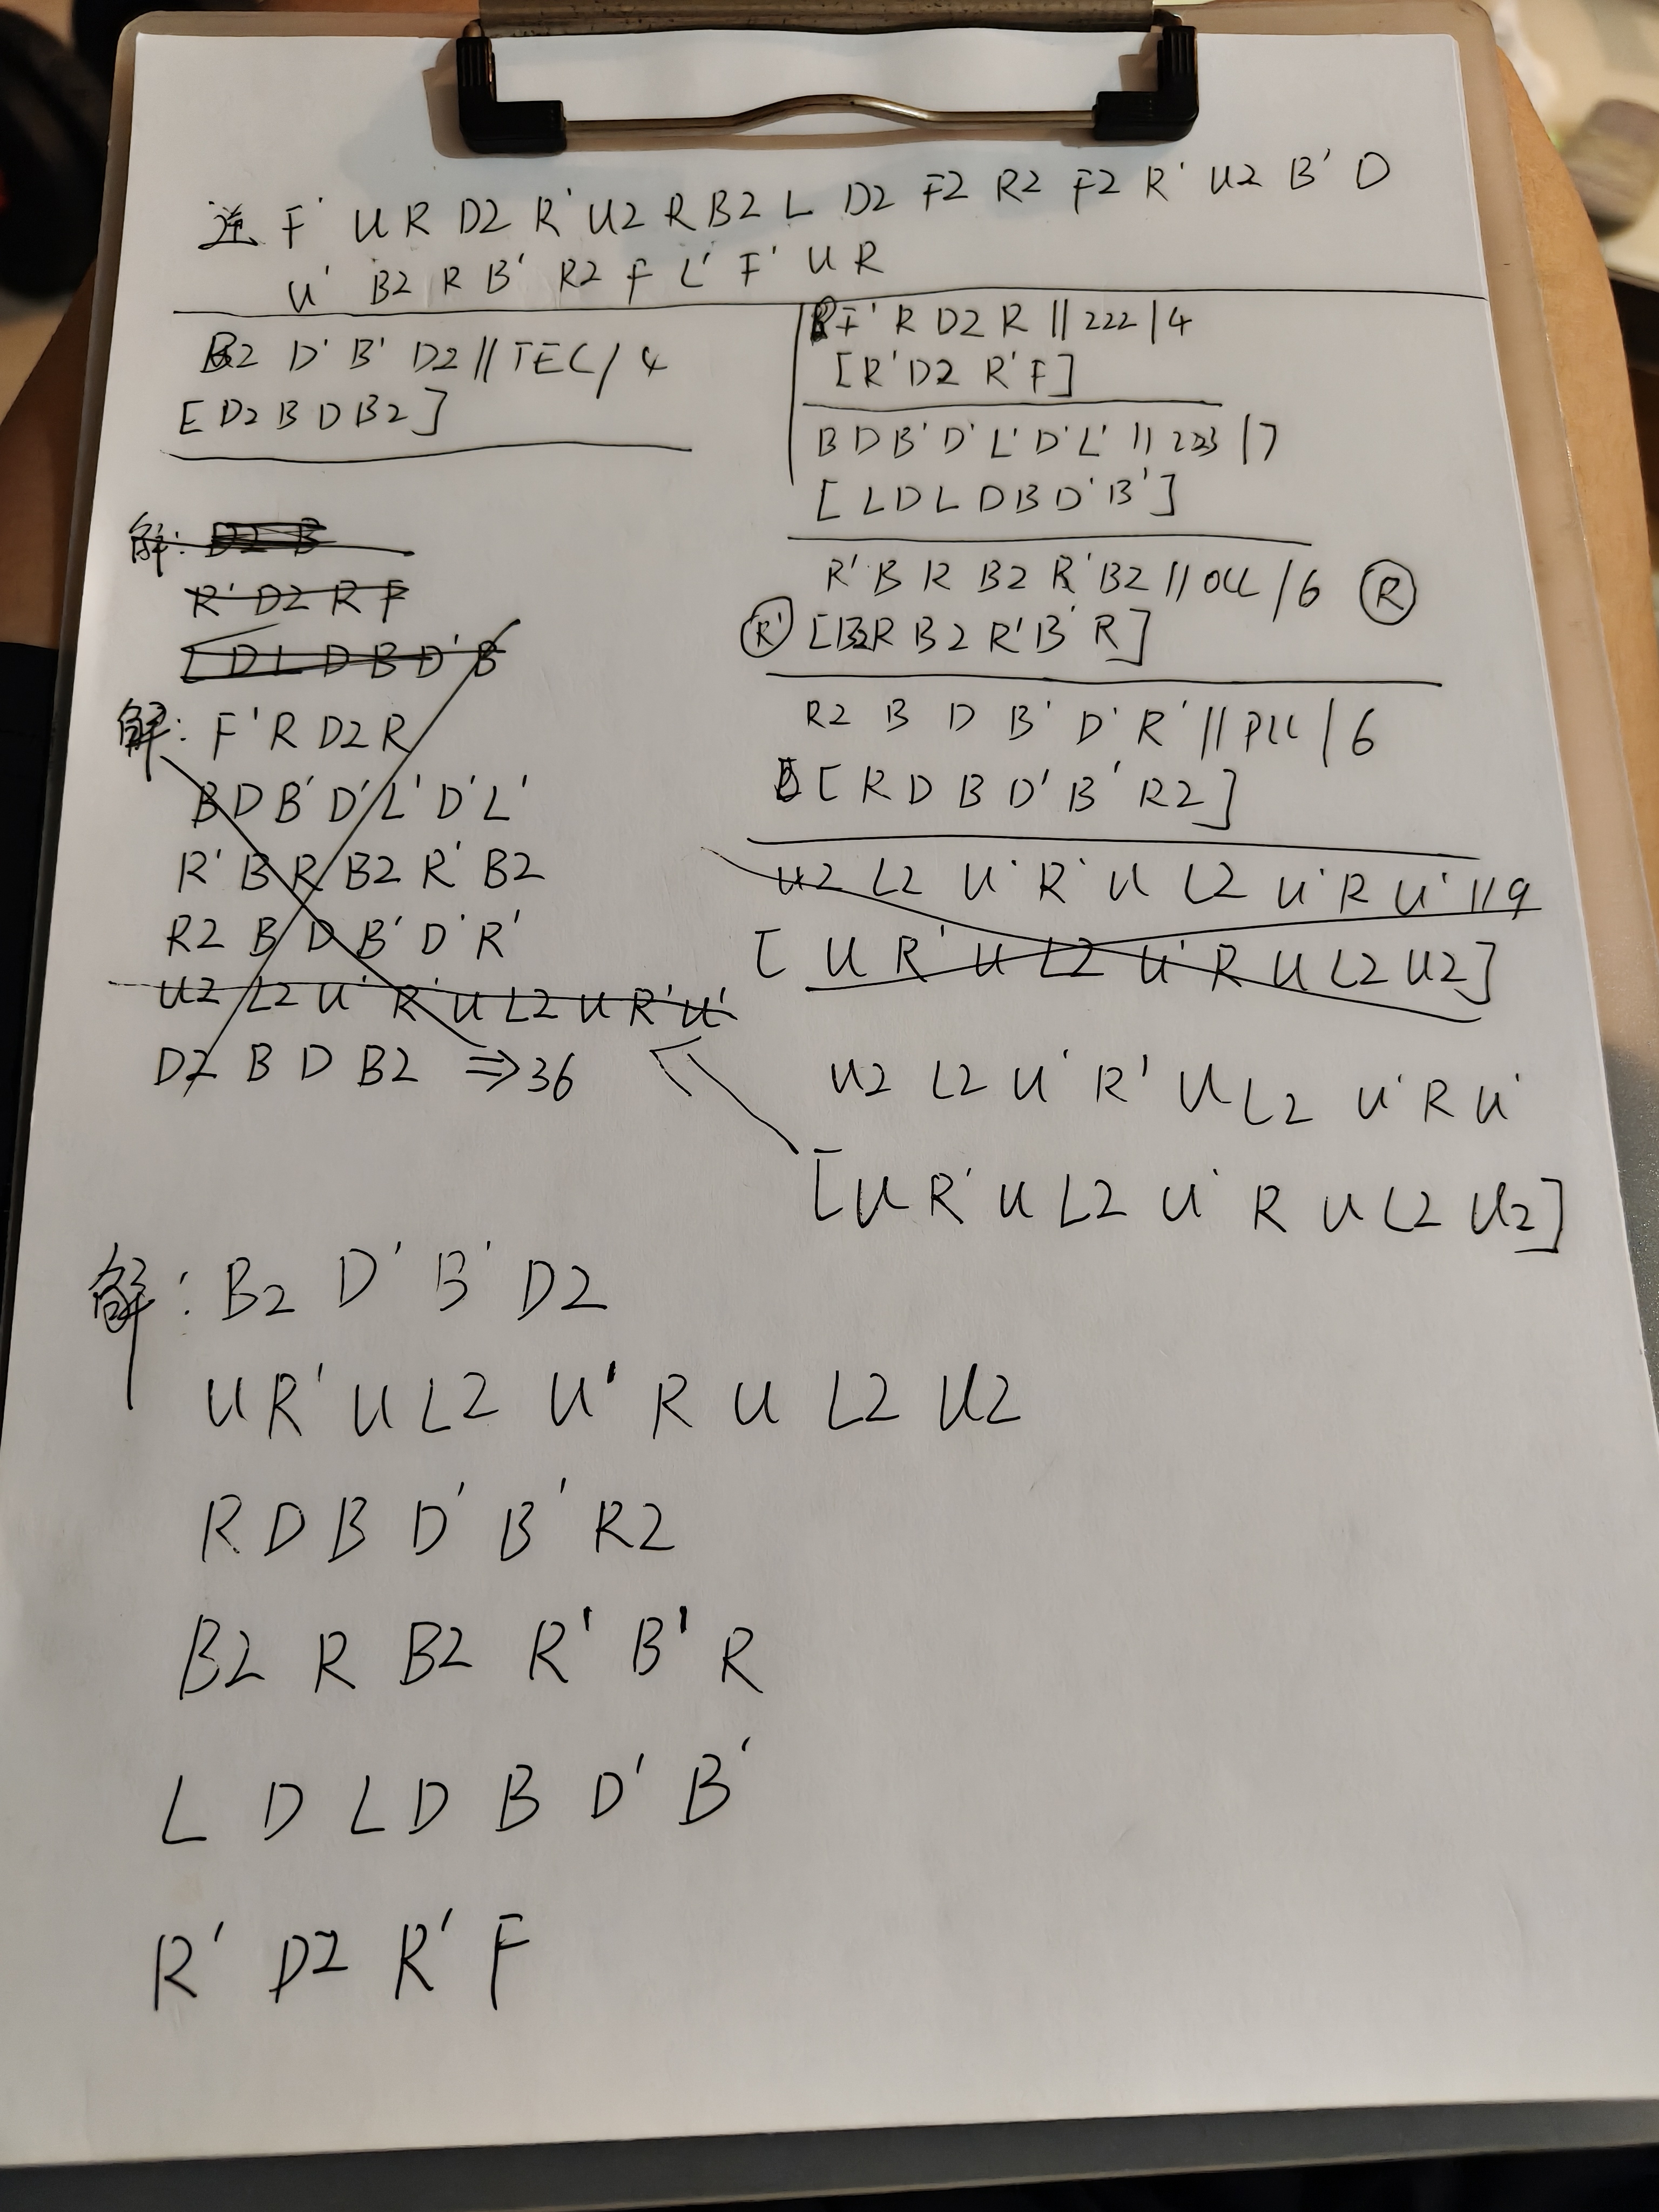 逆 F' U R D2 R' U2 R B2 L D2 F2 R2 F2 R' U2 B' D
U' B2 R B' R2 F L' F' U R
B2 D' B' D2 // TEC / 4
[ D2 B D B2 ]
F' R D2 R // 222 / 4
[ R' D2 R' F ]
B D B' D' L' D' L' // 223 / 7
[ L D L D B D' B' ]
R' B R B2 R' B2 // OLL / 6 R
R' [ B2 R B2 R' B' R ]
R2 B D B' D' R' // PLL / 6
[ R D B D' B' R2 ]
U2 L2 U' R' U L2 U' R U' // 9
[ U R' U L2 U' R U L2 U2 ]
U2 L2 U' R' U L2 U' R U'
[ U R' U L2 U' R U L2 U2 ]
解: D2 B
R' D2 R F
L D L D B D' B'
解: F' R D2 R
B D B' D' L' D' L'
R' B R B2 R' B2
R2 B D B' D' R'
U2 L2 U' R' U L2 U R' U'
D2 B D B2 ⇒ 36
解: B2 D' B' D2
U R' U L2 U' R U L2 U2
R D B D' B' R2
B2 R B2 R' B' R
L D L D B D' B'
R' D2 R' F